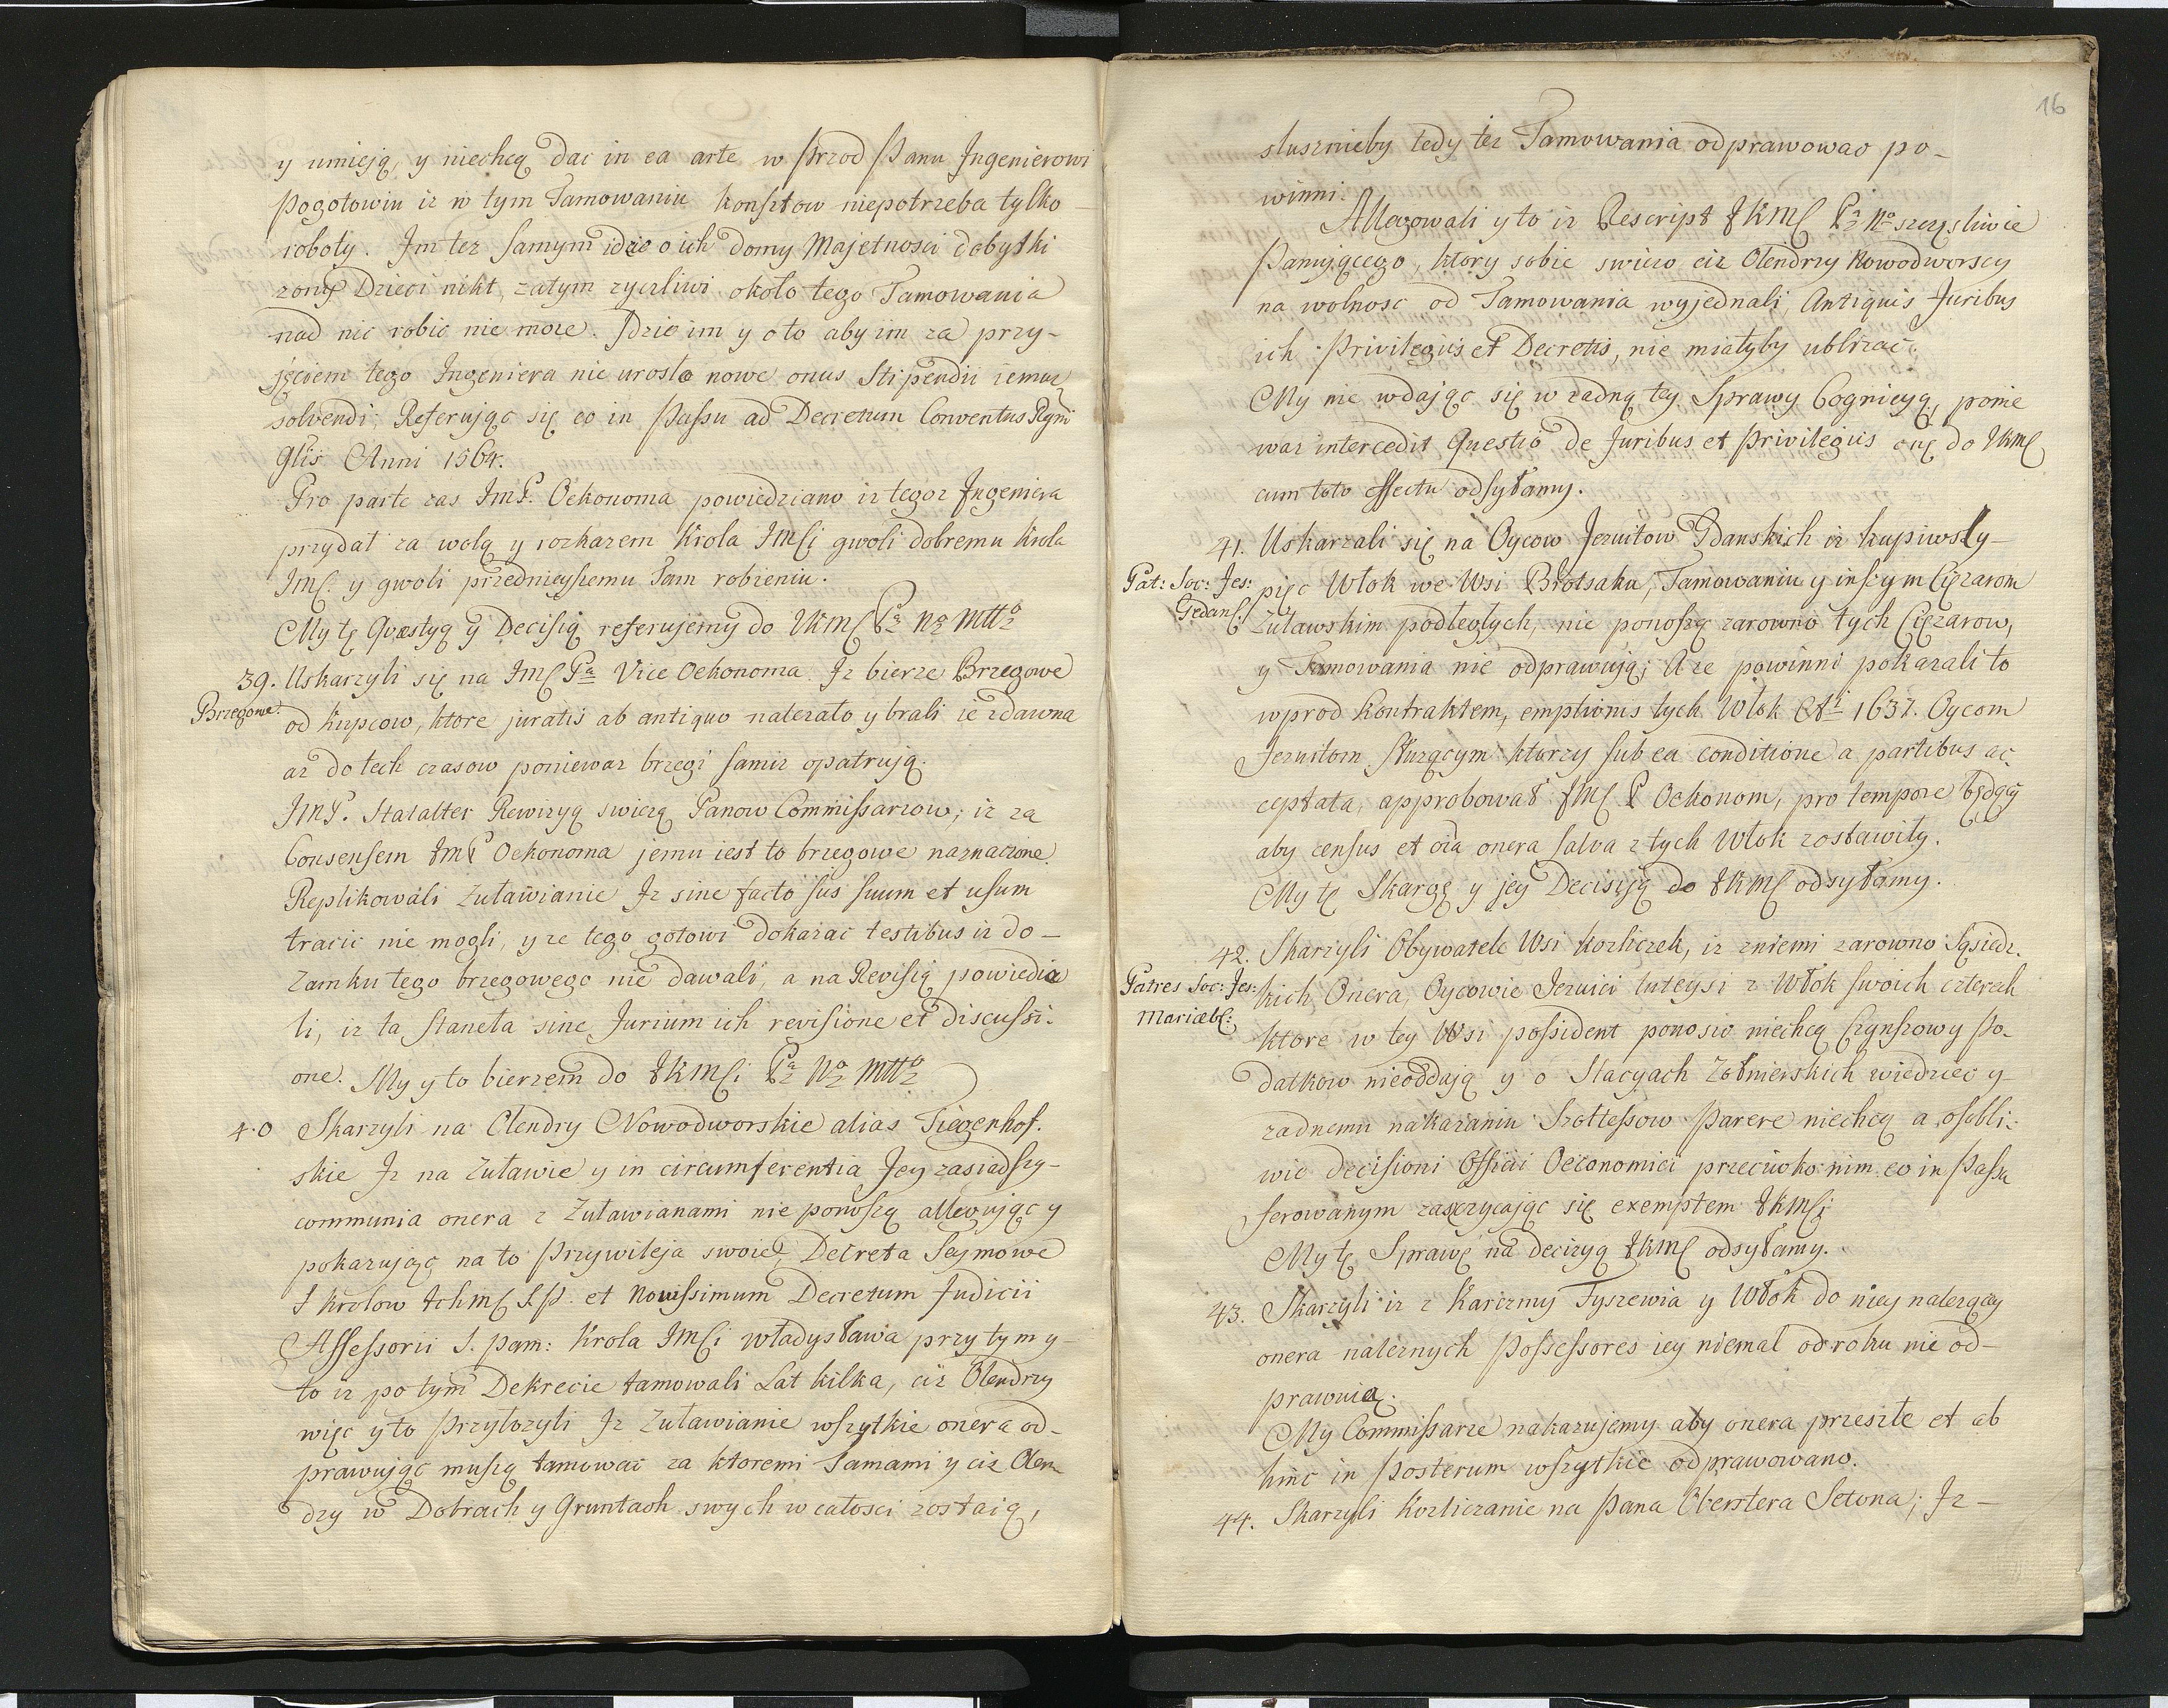 y umieją, y niechcą dac in ea arte w przod Panu Ingenierowi
Pogotowiu iz w tym Tamowaniu Kosztow niepotrzeba tylko
roboty. Im tez samym idzie o ich domy Majetnosci dobytki
zony Dzieci nikt, zatym zyczliwi około tego Tamowania
nad nie robic nie moze. Idzie im y o to aby im za przy-
jęciem tego Ingeniera nie urosło nowe onus Stipendii iemuz
solvendi. Referując się eo in Passu ad Decretum Conventus Regni
Glis Anni 1564.
Pro parte zas ImP. Oekonoma powiedziano iz tegoz Ingeniera
przydał za wolą y rozkazem Krola JMści gwoli dobremu Krola
JMś. y gwoli przednieyszemu Tam robieniu.
My tę Qvæstyą y Decisią referujemy do JKMś Pa No Mttо
39. Uskarzyli się na JMś Pa Vice Oekonoma Iz bierze Brzegowe
Brzegowe.
od Kupcow, ktore juratis ab antiquo nalezało y brali ie zdawna
az do tech czasow poniewaz brzegi samiz opatrują.
JMP. Statalter Rewizyą swiezą Panow Commissarzow; iz za
Consensem JMP Oekonoma jemu iest to brzegowe naznaczone.
Replikowali Zuławianie Iz sine facto Jus suum et usum
tracic nie mogli, y ze tego gotowi dokazac testibus iz do-
Zamku tego brzegowego nie dawali, a na Revisią powiedia
li, iz ta staneła sine Jurium ich revisione et discussi-
one. My y to bierzem do JKMści Pa No Mttо
4.0 Skarzyli na Olendry Nowodworskie alias Tiegenhof.
skie Iz na Zuławie y in circumferentia Jey zasiadszy-
communia onera z Zuławianami nie ponoszą allegując y
pokazując na to Przywileja swoie, Decreta Seymowe
I Krolow IchMś S.P. et Novissimum Decretum Judicii
Assessorii S. pam: Krola JMści Władysława przy tym y-
to iz po tym Dekrecie tamowali Lat kilka, ciz Olendrzy
więc y to Przyłozyli Iz Zuławianie wszytkie onera od-
prawując muszą tamowac za ktoremi Tamami y ciz Olen
drzy w Dobrach y Gruntach swych w całosci zostaią,
16
slusznieby tedy tez Tamowania odprawowac po-
winni.
Allegowali y to iz Rescript JKMś Pa No szczęsliwie
Panującego, ktory sobie swiezo ciz Olendrzy Nowodworscy
na wolnosc od Tamowania wyjednali, Antiquis Juribus
ich Privilegiis et Decretis, nie miałyby ublizac.
My nie wdając się w zadną tey Sprawy Cognicyą, ponie
waz intercedit Questio de Juribus et Privilegiis onę do JKMś
cum toto effectu odsyłamy.
41. Uskarzali się na Oycow Jezuitow Gdanskich iz kupiwszy-
Pat: Soc: Jes:
Gedans:
pięc Włok we Wsi Brotsaku, Tamowaniu y inszym Cięzarom
Zuławskim podległych, nie ponoszą zarowno tych Cięzarow,
y Tamowania nie odprawują; A ze powinni pokazali to
wprod Kontraktem, emptionis tych Włok Ai 1637. Oycom
Jezuitom Słuzącym ktorzy sub ea conditione a partibus ac-
ceptata, approbował JMś P Oekonom, pro tempore będący
aby census et oia onera salva z tych Włok zostawiły.
My tę Skargę y jey Decisyją do JKMś odsyłamy.
42. Skarzyli Obywatele Wsi Kozliczek, iz zniemi zarowno Sąsiedz.
Patres Soc: Jes:
Mariæb:
kich Onera, Oycowie Jezuici tuteysi z Włok swoich czterech
ktore w tey Wsi possident ponosic niechcą Czynszowy Po-
datkow nieoddają y o Stacyach Zołnierskich wiedziec y-
zadnemu nakazaniu Szoltessow Parere niechcą a osobli-
wie decisioni Officii Oeconomici przeciwko nim eo in Passu
ferowanym zaszczycając się exemptem JKMści
My tę Sprawę na decizyą JKMś odsyłamy.
43. Skarzyli iz z Karczmy Tyszewia y Włok do niey nalezący
onera naleznych Possessores iey niemal od roku nie od-
prawuią.
My Commissarze nakazujemy aby onera przeszłe et ab
hinc in Posterum wszytkie odprawowano.
44. Skarzyli Kozliczanie na Pana Obersztera Setona; Iz-